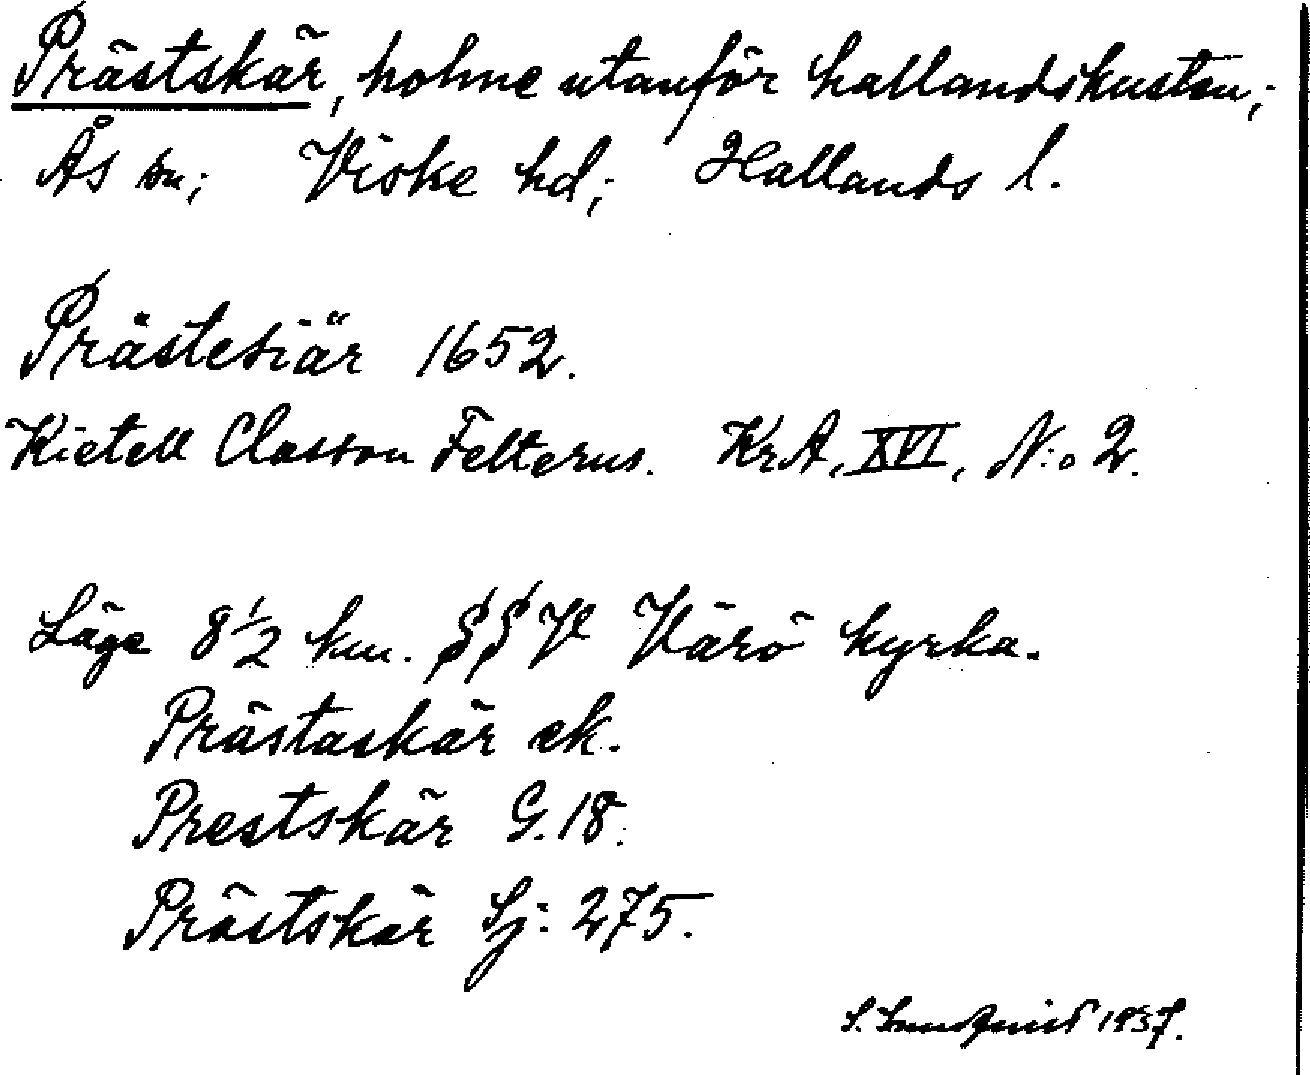 Prästskär, holme utanför hallandskusten;
Ås sn; Viske hd; Hallands l.
Prästesiär 1652.
Kietell Classon Felterus. KrA, XVI, N:o 2.
Läge 8 1/2 km. SSV Värö kyrka.
Prästaskär ek.
Prestskär G. 18.
Prästskär Sj: 275.
S. Lundquist 1937.